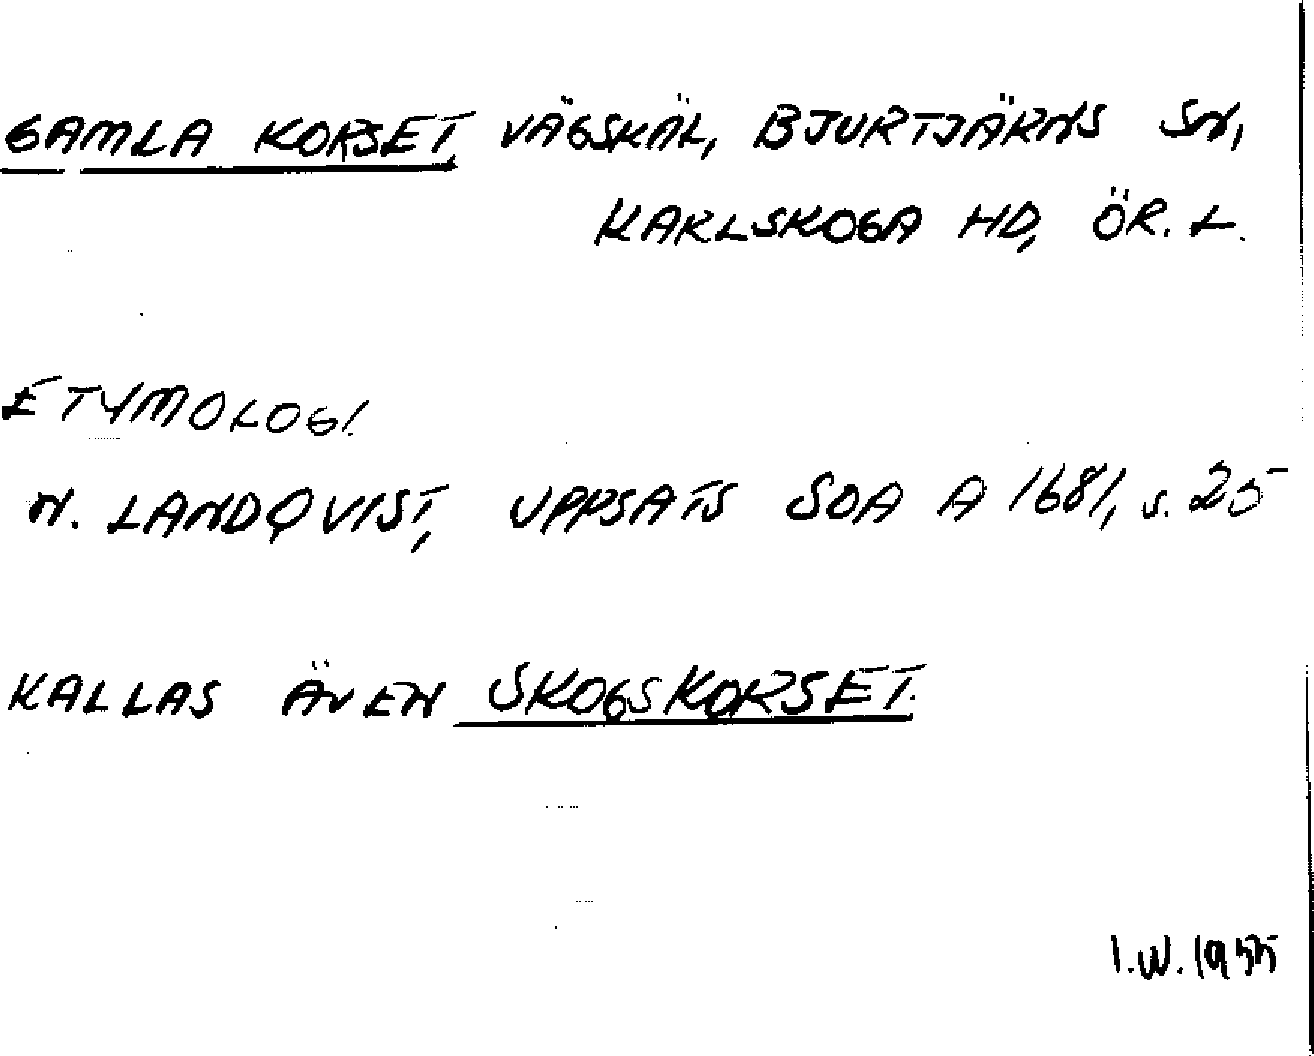 GAMLA KORSET, VÄGSKÄL, BJURTJÄRNS SN,
KARLSKOGA HD, ÖR. L.
ETYMOLOGI
N. LANDQVIST, UPPSATS SOA A 1681, s. 25
KALLAS ÄVEN SKOGSKORSET.
I.W. 1955